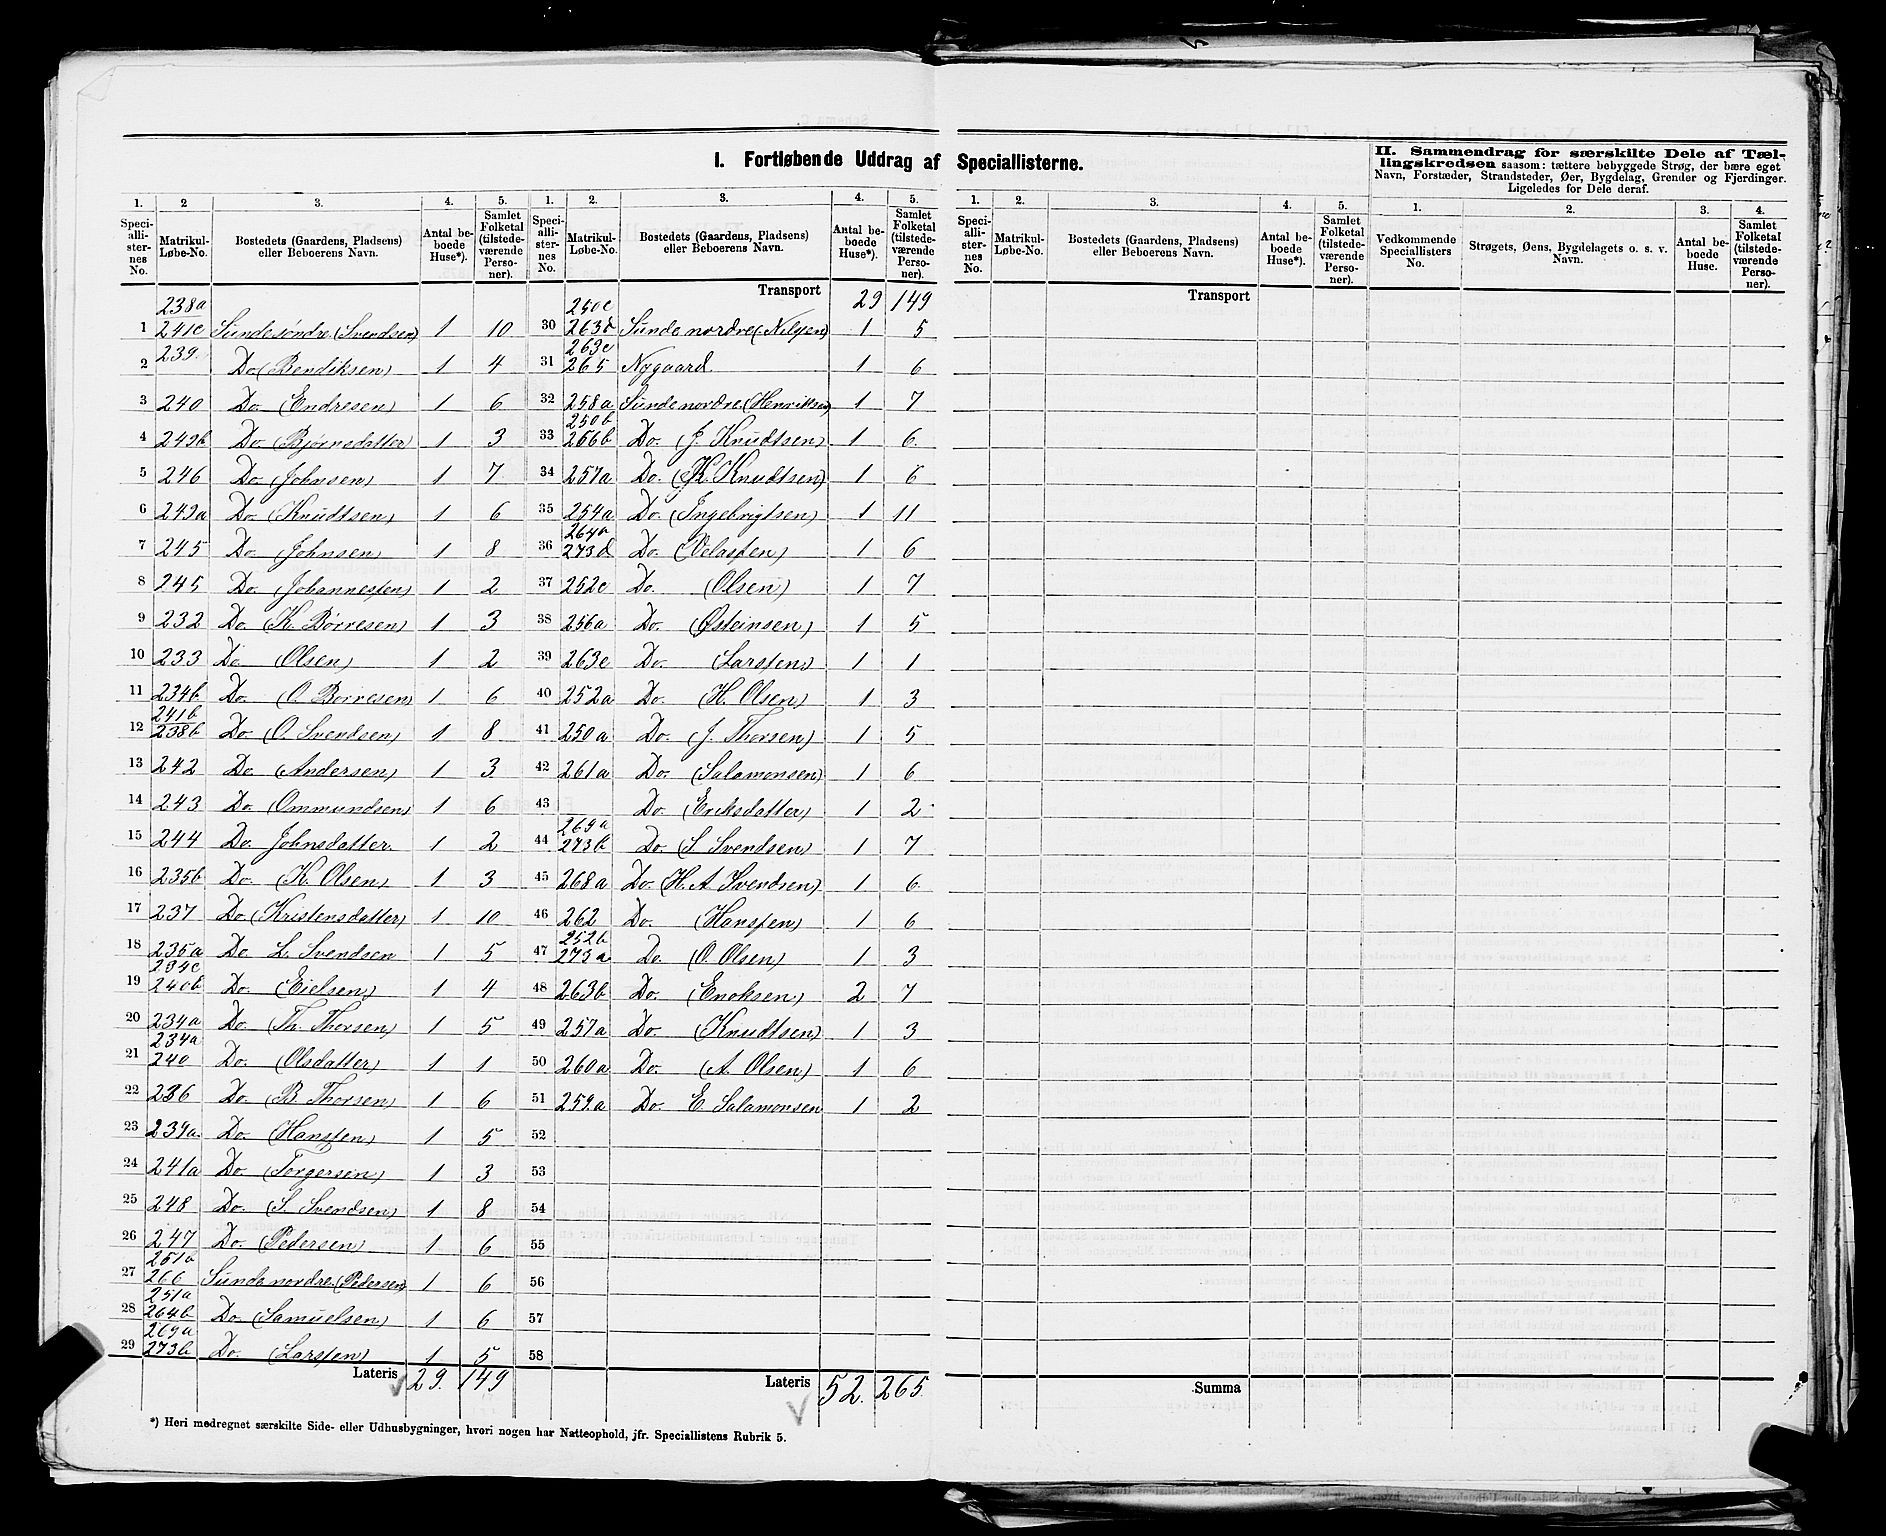 I. Fortløbende Uddrag af Speciallisterne.
II. Sammendrag for særskilte Dele af Tæl-
lingskredsen saasom: tættere bebyggede Strøg, der bære eget
Navn, Forstæder, Strandsteder, Øer, Bygdelag, Grender og Fjerdinger.
Ligeledes for Dele deraf.
1. 2 3. 4. 5. 1. 2. 3. 4. 5. 1. 2. 3. 4. 5. 1. 2. 3. 4.
Speciallisternes No. Matrikul-Løbe-No. Bostedets (Gaardens, Pladsens) eller Beboerens Navn. Antal beboede Huse*). Samlet Folketal (tilstedeværende Personer).
Speciallisternes No. Matrikul-Løbe-No. Bostedets (Gaardens, Pladsens) eller Beboerens Navn. Antal beboede Huse*). Samlet Folketal (tilstedeværende Personer).
Speciallisternes No. Matrikul-Løbe-No. Bostedets (Gaardens, Pladsens) eller Beboerens Navn. Antal beboede Huse*). Samlet Folketal (tilstedeværende Personer).
Vedkommende Speciallisters No. Strøgets, Øens, Bygdelagets o. s. v. Navn. Antal beboede Huse. Samlet Folketal (tilstedeværende Personer).
1 238a 241c Sunde søndre (Svendsen) 1 10
2 239. Do (Bendiksen) 1 4
3 240 Do. (Endresen) 1 6
4 249b Do. (Bjørnsdatter) 1 3
5 246 Do. (Johnsen) 1 7
6 249a Do. (Knudtsen) 1 6
7 245 Do. (Johnsen) 1 8
8 245 Do. (Johannessen) 1 2
9 232 Do. (K. Børresen) 1 3
10 233 Do (Olsen) 1 2
11 234b Do. (O. Børresen) 1 6
12 241b 238b Do (O. Svendsen) 1 8
13 242 Do (Andersen) 1 3
14 243 Do. (Ommundsen) 1 6
15 244 Do. Johnsdatter. 1 2
16 235b Do. (K. Olsen) 1 3
17 237 Do. (Kristensdatter) 1 10
18 235a Do L. Svendsen 1 5
19 234c 240b Do. (Eielsen) 1 4
20 234a Do. (Th. Thorsen) 1 5
21 234a 240 Do. (Olsdatter) 1 1
22 236 Do. (B. Thorsen) 1 6
23 239a. Do. (Hanssen) 1 5
24 241a Do. (Torgersen) 1 3
25 248 Do. (S. Svendsen) 1 8
26 247 Do. (Pedersen) 1 6
27 251a 266 Sunde nordre (Pedersen) 1 6
28 251a 264b Do. (Samuelsen) 1 6
29 269a 273b Do. (Larssen) 1 5
Lateris 29. 149
Transport 29 149
30 250c 263d Sunde nordre (Nilsen) 1 5
31 263c 265 Nygaard 1 6
32 258a Sunde nordre. (Henriksen) 1 7
33 250b 256b Do. (J. Knudtsen) 1 6.
34 257a Do. (K. Knudtsen) 1 6
35 254a Do. (Ingebrigtsen) 1 11
36 264a 273d Do. (Velassen) 1 6
37 252c Do. (Olsen) 1 7
38 256a Do. (Østeinsen) 1 5
39 263c Do. (Larssen) 1 1
40 252a Do. (H. Olsen) 1 3
41 250a Do. (J. Thorsen) 1 5
42 261a Do. (Salamonsen) 1 6
43 Do. (Eriksdatter) 1 2
44 269a 273b Do. (S. Svendsen) 1 7
45 268a Do. (H. A. Svendsen) 1 6.
46 262 Do. (Hanssen) 1 6
47 252b 273a Do. (O. Olsen) 1 3
48 263b Do. (Enoksen) 2 7
49 257a Do. (Knudtsen) 1 3
50 260a Do. (A. Olsen) 1 6
51 259.a Do. E. Salamonsen 1 2
52
53
54
55
56
57
58
Lateris 52. 265.
Transport
Summa
*) Heri medregnet særskilte Side- eller Udhusbygninger, hvori nogen har Natteophold, jfr. Speciallistens Rubrik 5.